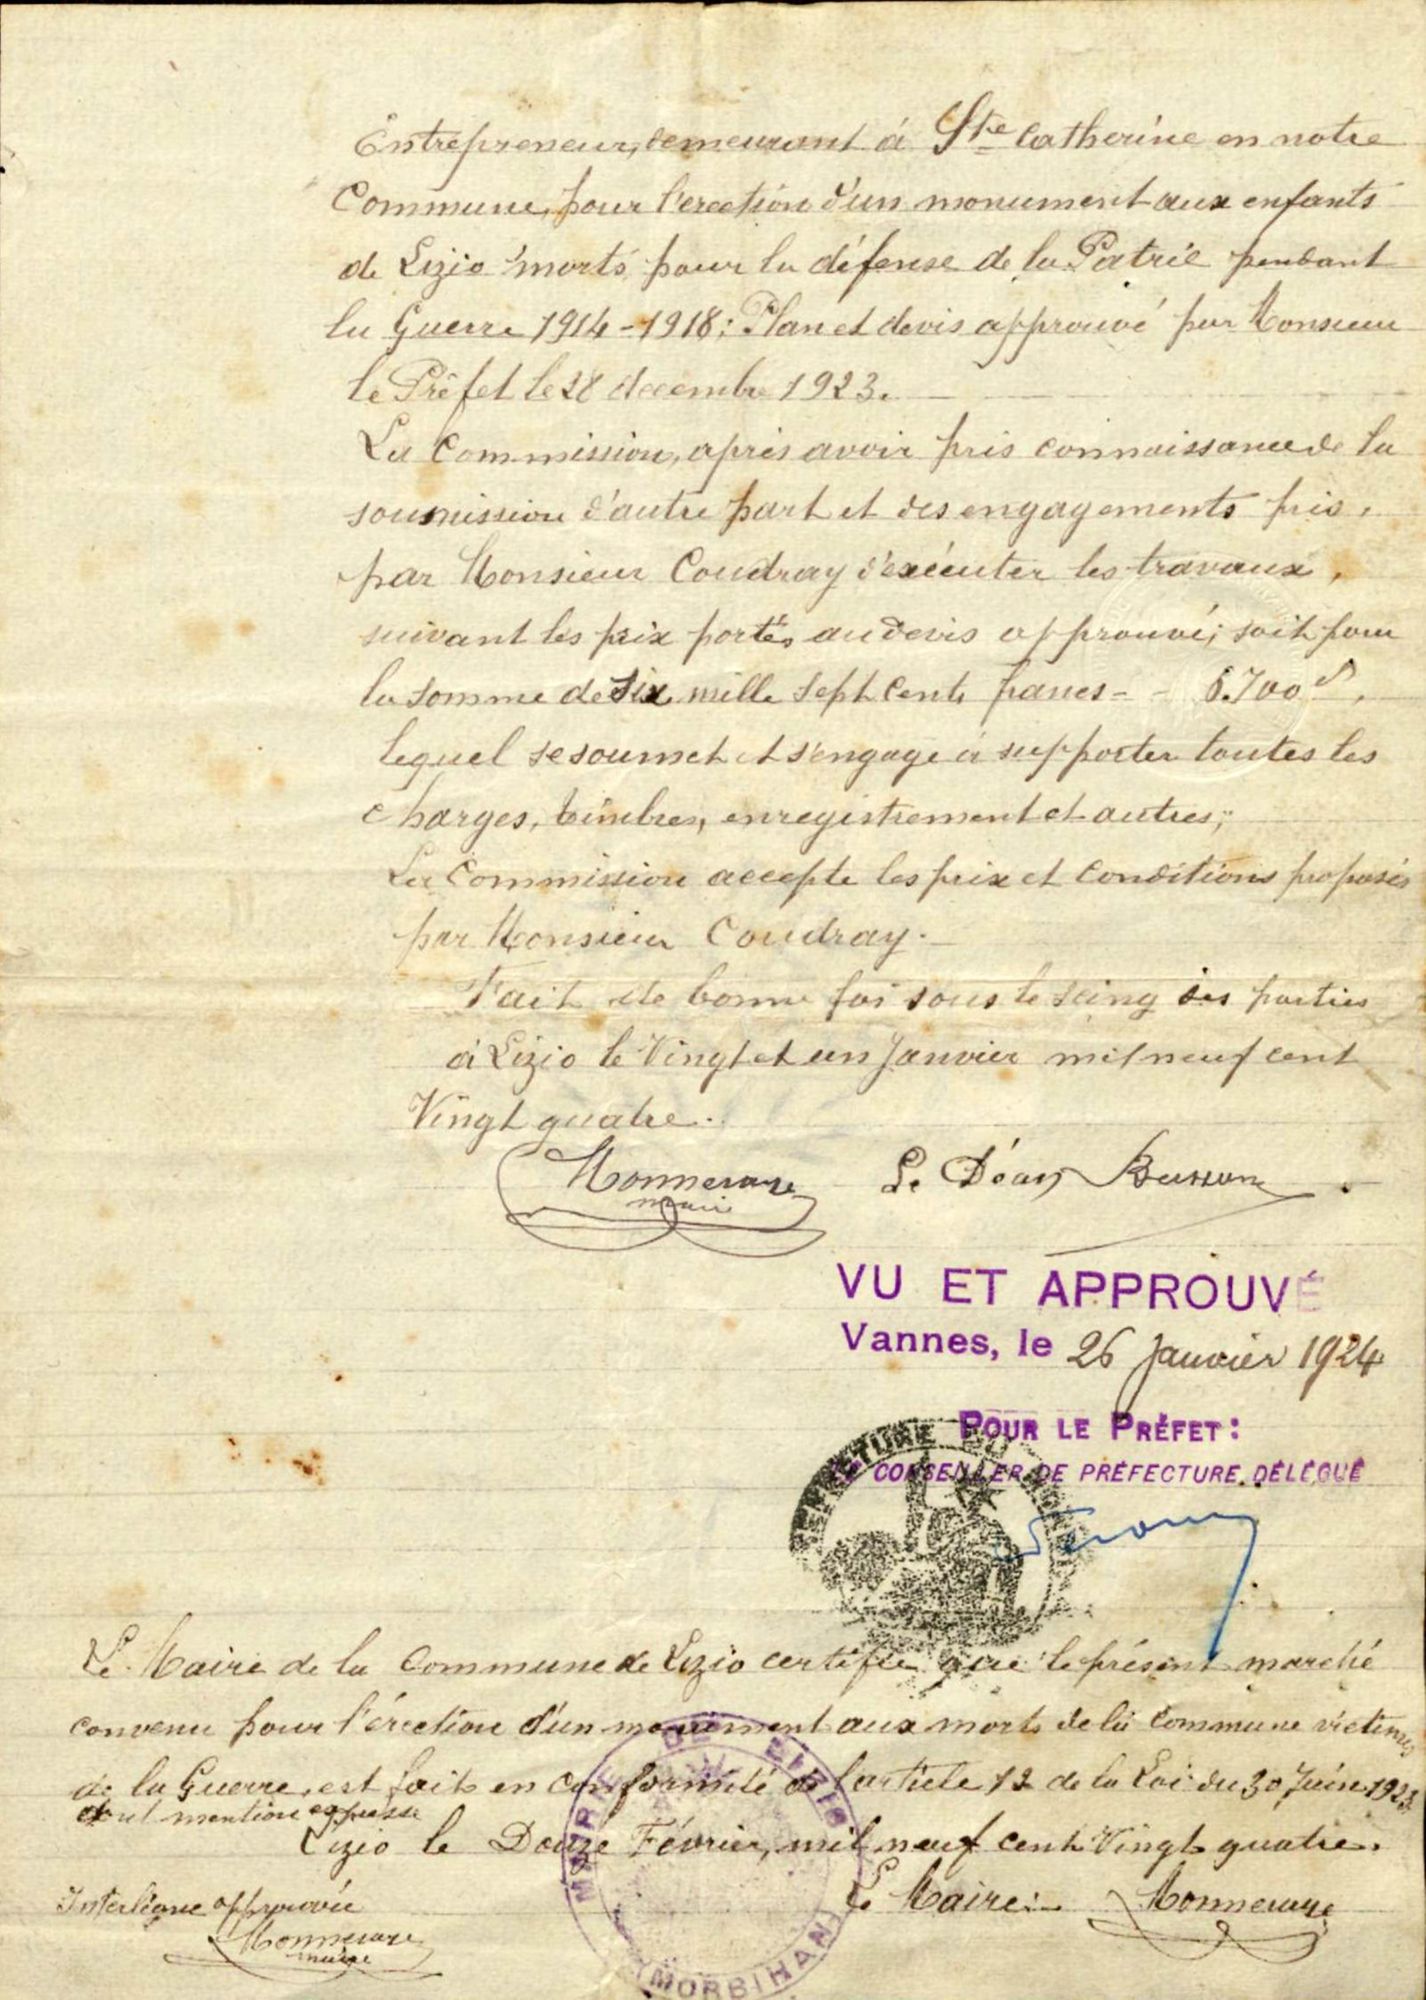 Entrepreneur, demeurant à Ste Catherine en notre
Commune, pour l'erection d'un monument aux enfants
de Lizio morts pour la défense de la Patrie pendant
la Guerre 1914-1918; Plan et devis approuvé par Monsieur
le Préfet le 28 decembre 1923.
La Commission, après avoir pris connaissance de la
soumission d'autre part et des engagements pris,
par Monsieur Coudray d'exécuter les travaux,
suivant les prix portés au devis approuvé; soit pour
la somme de Six mille Sept Cents francs - - 6.700 f,
lequel se soumet et s'engage à supporter toutes les
charges, timbres, enregistrement et autres;
La Commission accepte les prix et Conditions proposés
par Monsieur Coudray.
Fait de bonne foi sous le Seing des parties
à Lizio le Vingt et un Janvier mil neuf cent
Vingt quatre.
Le Doyen
maire
VU ET APPROUVÉ
Vannes, le 26 Janvier 1924
POUR LE PRÉFET:
LE CONSEILLER DE PRÉFECTURE DÉLÉGUÉ
Le Maire de la Commune de Lizio certifie que le présent marché
convenu pour l'érection d'un monument aux morts de la Commune victimes
de la Guerre, est fait en conformité de l'article 12 de la Loi du 30 Juin 1923
dont mention expresse
Lizio le Douze Février, mil neuf cent Vingt quatre.
Le Maire:
Interligne approuvée
maire
MAIRIE DE LIZIO
(MORBIHAN)